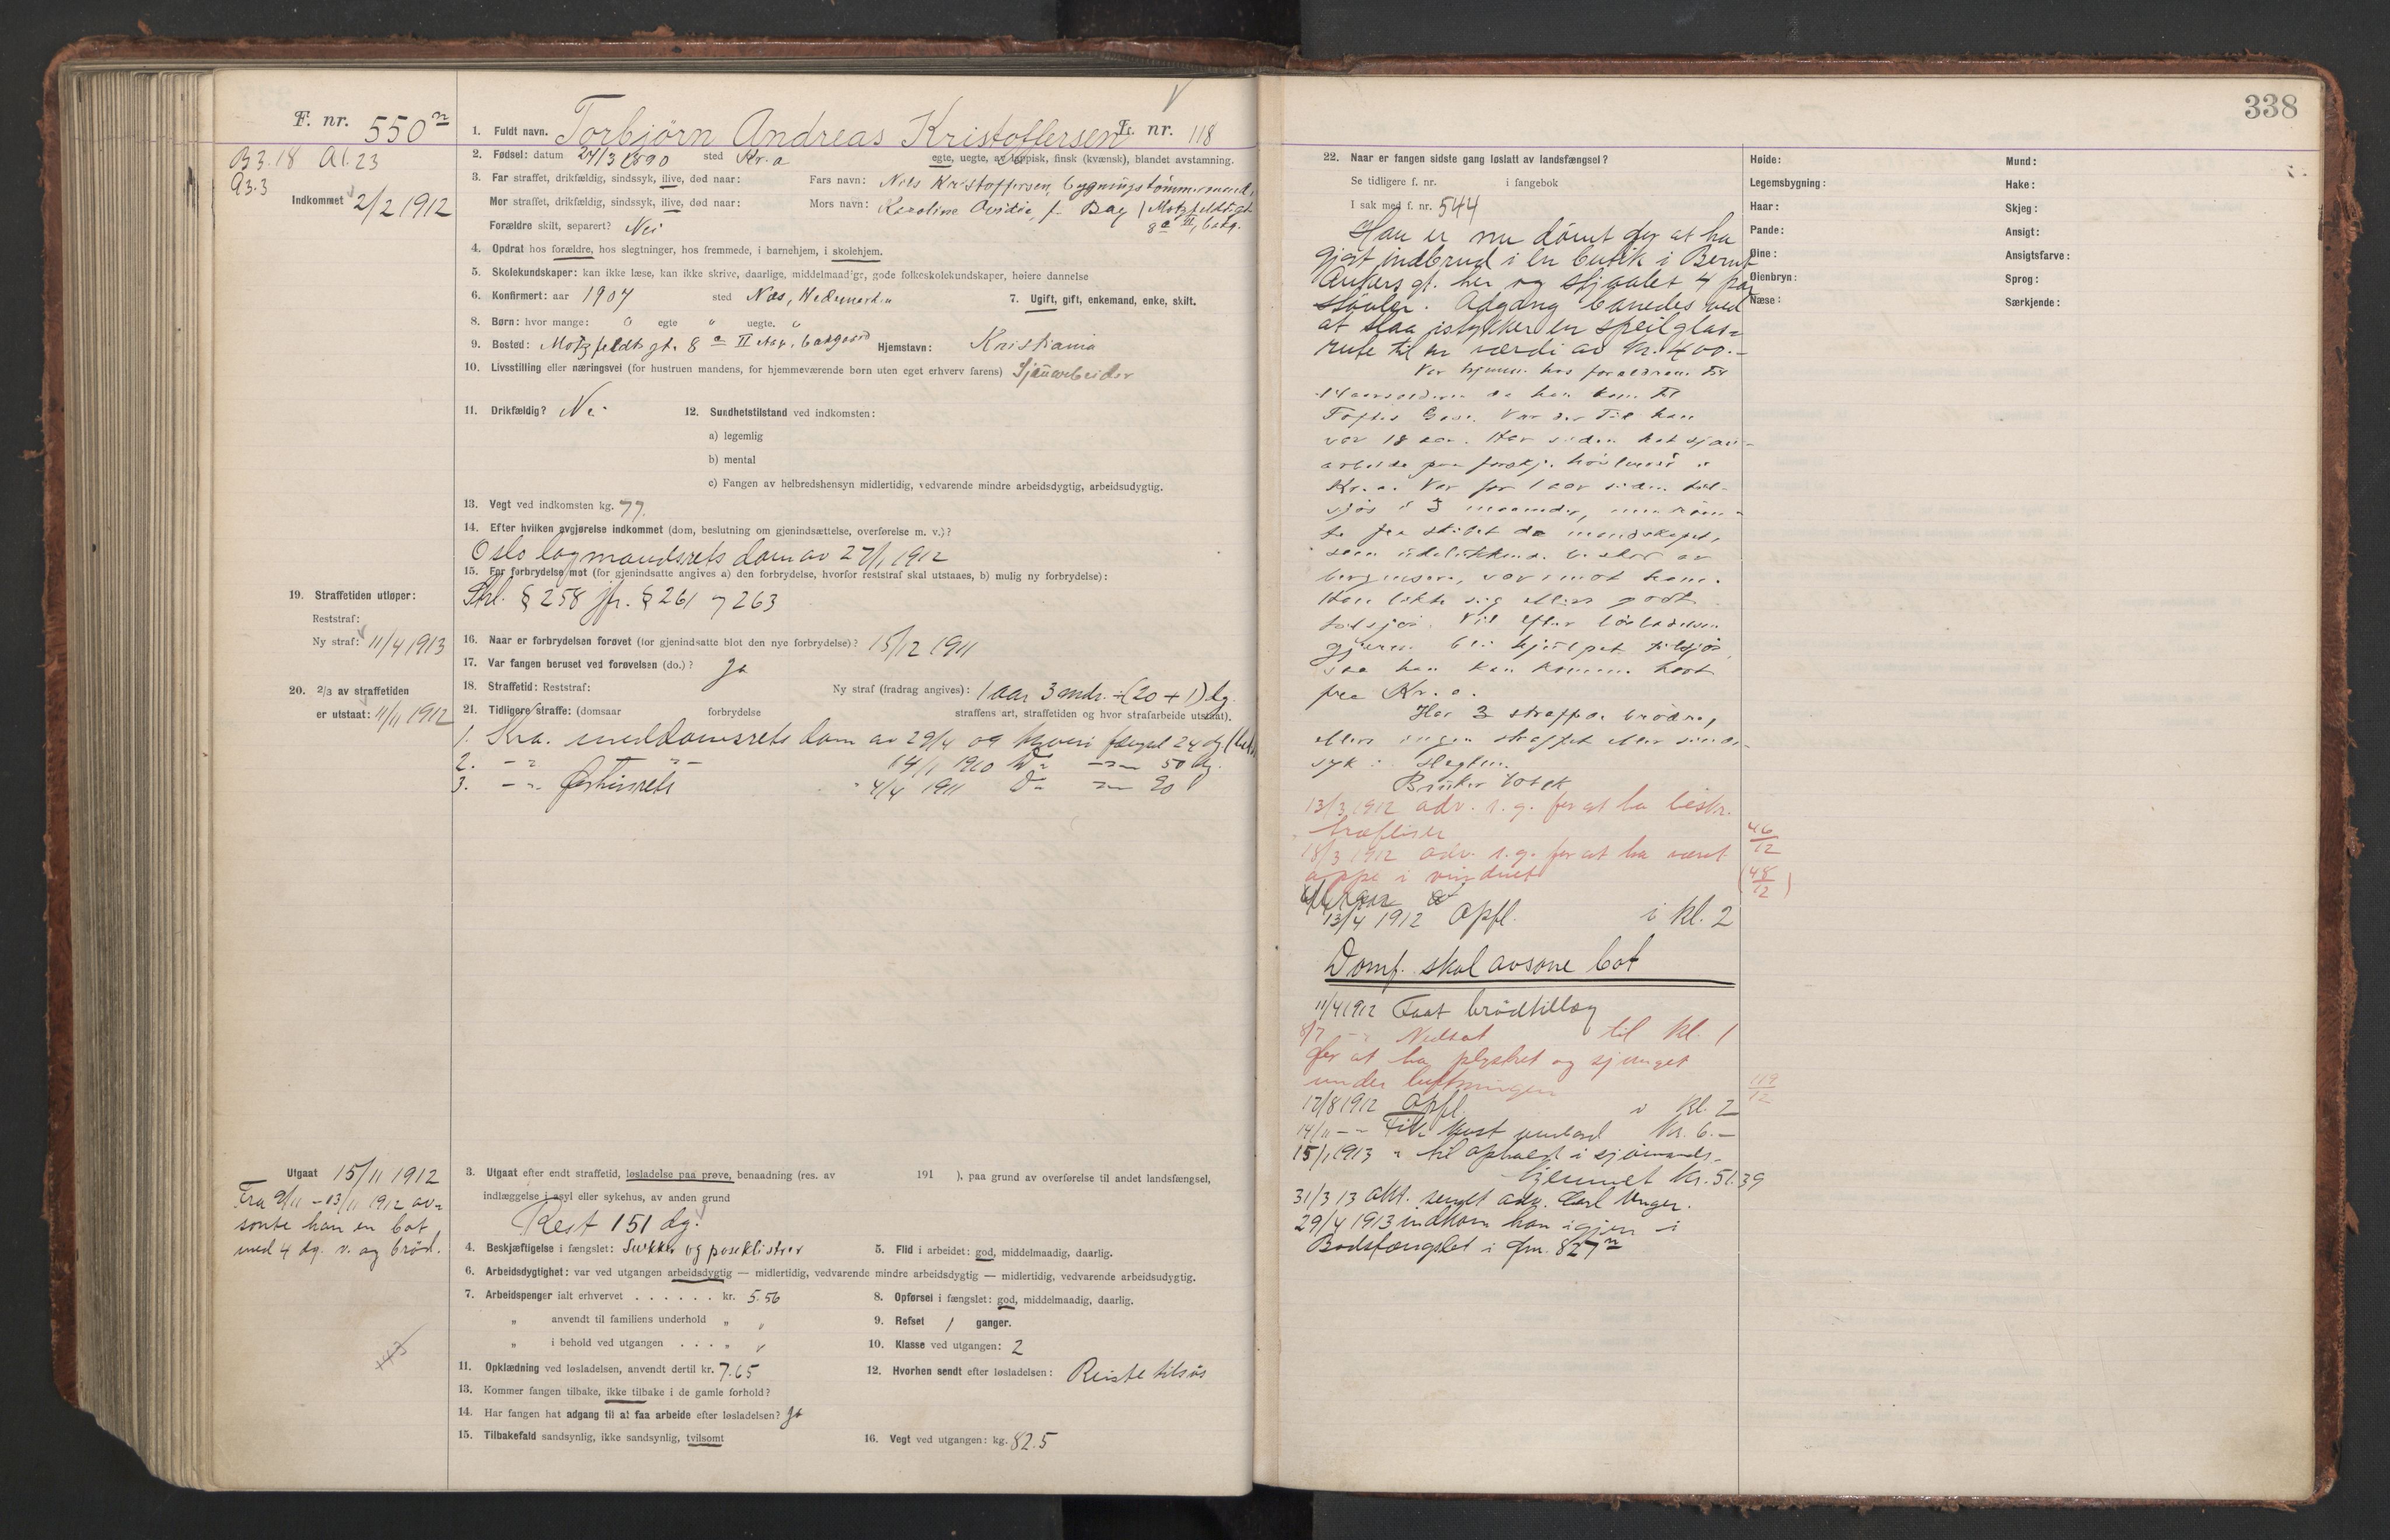 F. nr. 550n
B3.18 A1.23
A3.3
Indkommet 2/2 1912
1. Fuldt navn. Torbjörn Andreas Kristoffersen L. nr. 118
2. Fødsel: datum 24/3 1890 sted Kr.a egte, uegte, av lappisk, finsk (kvænsk), blandet avstamning.
3. Far straffet, drikfældig, sindssyk, ilive, død naar: Fars navn: Nils Kristoffersen, bygningstömmermand,
Mor straffet, drikfældig, sindssyk, ilive, død naar: Mors navn: Karoline Ovidia, f. Bay / Motzfeldtsgt.
Forældre skilt, separert? Nei 8a II, bakg.
4. Opdrat hos forældre, hos slegtninger, hos fremmede, i barnehjem, i skolehjem.
5. Skolekundskaper: kan ikke læse, kan ikke skrive, daarlige, middelmaadige, gode folkeskolekundskaper, høiere dannelse
6. Konfirmert: aar 1907 sted Nes, Hedemarken 7. Ugift, gift, enkemand, enke, skilt.
8. Børn: hvor mange: 0 egte " uegte. "
9. Bosted: Motzfeldtsgt. 8a II etg. bakgaard Hjemstavn: Kristiania
10. Livsstilling eller næringsvei (for hustruen mandens, for hjemmeværende børn uten eget erhverv farens) Sjauarbeider
11. Drikfældig? Nei 12. Sundhetstilstand ved indkomsten:
a) legemlig
b) mental
c) Fangen av helbredshensyn midlertidig, vedvarende mindre arbeidsdygtig, arbeidsudygtig.
13. Vegt ved indkomsten kg. 77.
14. Efter hvilken avgjørelse indkommet (dom, beslutning om gjenindsættelse, overførelse m. v.)?
Oslo lagmandsrets dom av 27/1 1912
15. For forbrydelse mot (for gjenindsatte angives a) den forbrydelse, hvorfor reststraf skal utstaaes, b) mulig ny forbrydelse):
Strl. § 258 jfr. § 261 og 263
19. Straffetiden utløper:
Reststraf:
Ny straf: 11/4 1913
16. Naar er forbrydelsen forøvet (for gjenindsatte blot den nye forbrydelse)? 15/12 1911
17. Var fangen beruset ved forøvelsen (do.)? Ja
18. Straffetid: Reststraf: Ny straf (fradrag angives): 1 aar 3 mdr. ÷ (20 + 1) dg.
20. 2/3 av straffetiden
er utstaat: 11/11 1912
21. Tidligere straffe: (domsaar forbrydelse straffens art, straffetiden og hvor strafarbeide utstaat).
1. Kra. meddomsrets dom av 29/4 09 tyveri fængsel 24 dg.
2. - " - " - 14/1 1910 Do - " - 50 dg.
3. - " - 4/4 1911 Do - " - 90
Utgaat 15/11 1912
Fra 9/11 - 13/11 1912 av=
sonte han en bot
med 4 dg. v. og bröd.
3. Utgaat efter endt straffetid, løsladelse paa prøve, benaadning (res. av 191 ), paa grund av overførelse til andet landsfængsel,
indlæggelse i asyl eller sykehus, av anden grund
Rest 151 dg.
4. Beskjæftigelse i fængslet: Sækker og poseklistrer 5. Flid i arbeidet: god, middelmaadig, daarlig.
6. Arbeidsdygtighet: var ved utgangen arbeidsdygtig — midlertidig, vedvarende mindre arbeidsdygtig — midlertidig, vedvarende arbeidsudygtig.
7. Arbeidspenger ialt erhvervet . . . . . . kr. 5.56 8. Opførsel i fængslet: god, middelmaadig, daarlig.
" anvendt til familiens underhold " " 9. Refset 1 ganger.
" i behold ved utgangen . . . " " 10. Klasse ved utgangen: 2
11. Opklædning ved løsladelsen, anvendt dertil kr. 7.65 12. Hvorhen sendt efter løsladelsen: Reiste tilsjös
13. Kommer fangen tilbake, ikke tilbake i de gamle forhold?
14. Har fangen hat adgang til at faa arbeide efter løsladelsen? Ja
15. Tilbakefald sandsynlig, ikke sandsynlig, tvilsomt 16. Vegt ved utgangen: kg. 82.5
338
22. Naar er fangen sidste gang løslatt av landsfængsel?
Se tidligere f. nr. i fangebok
I sak med f. nr. 544
Høide: Mund:
Legemsbygning: Hake:
Haar: Skjeg:
Pande: Ansigt:
Øine: Ansigtsfarve:
Øienbryn: Sprog:
Næse: Særkjende:
Han er nu dömt for at ha
gjort indbrud i en butik i Bernt
Ankers gt. her og stjaalet 4 par
stövler. Adgang banedes ved
at slaa istykker en speilglas=
rute til en værdi av kr. 400.-
Var hjemme hos forældrene til
14 aarsalderen da han kom til
Toftes Gave. Var der til han
var 18 aar. Har siden hat sjau-
arbeide paa forskj. i
Kr.a. Var for 1 aar siden til-
sjös i 3 maaneder, men röm-
te fra skibet da mandskapet,
som udelukkende bestod av
bergensere, var imot ham.
Han likte sig ellers godt
tilsjös. Vil efter lösladelsen
gjerne bli hjulpet tilsjös,
saa han kan komme bort
fra Kr.a.
Har 3 straffede brödre,
ellers ingen straffet eller sinds-
syk i slegten.
Bruker tobak
13/3 1912 adv. s. g. for at ha
46/12
18/3 1912 adv. s. g. for at ha været
oppe i vinduet
(48/12)
13/4 1912 Opfl. i kl. 2
Domf. skal avsone bot
11/4 1912 Faat brödtillæg
8/7 - " Nedsat til kl. 1
for at ha plystret og sjunget
under luftningen
119/12
17/8 1912 Opfl. i kl. 2
14/11 - " Fik kr. 6.-
15/1 1913 " til ophold i sjömands-
hjemmet kr. 51.39
31/3 13 Akt. sendt adv. Carl Unger.
29/4 1913 indkom han igjen i
Bodsfængslet i fnr. 827n